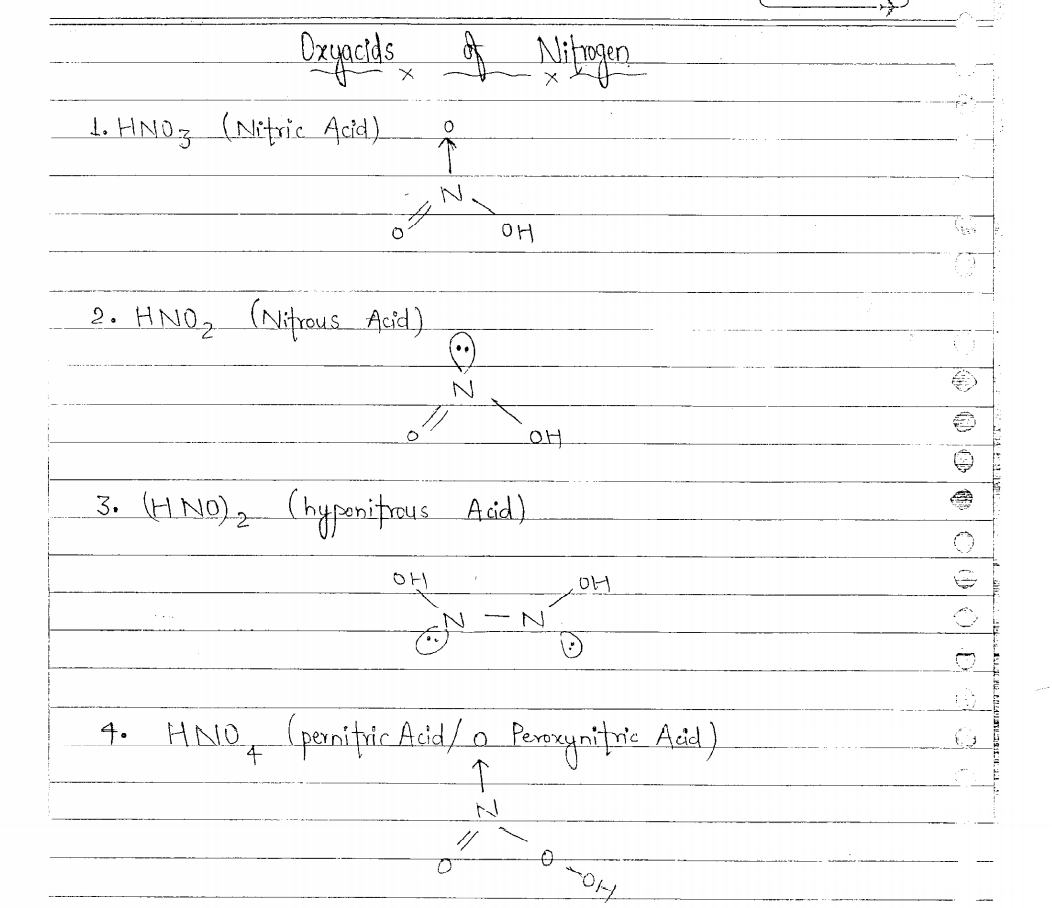 Oxyacids of Nitrogen
1. HNO3 (Nitric Acid)
O
↑
N
O OH
2. HNO2 (Nitrous Acid)
N
O OH
3. (HNO)2 (hyponitrous Acid)
OH OH
N — N
4. HNO4 (pernitric Acid/ Peroxynitric Acid)
O
↑
N
O O
OH